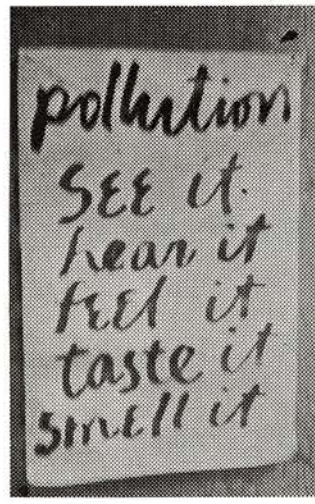 pollution
SEE it.
hear it
fEEl it
taste it
smEll it